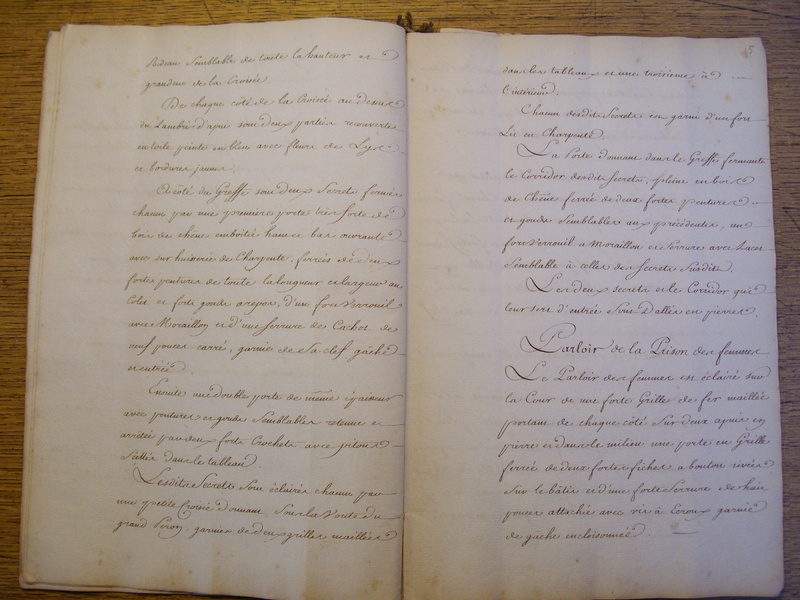 Rideau Semblable de toute la hauteur et
grandeur de la Croisée.
De chaque côté de la Croisé au dessus
du Lambris d'apui sont deux parties recouvertes
en toile peinte en bleu avec fleurs de Lys
et bordures jaunes.
A Côté du Greffe sont deux Secrets fermés
chacun par une première porte très forte de
bois de chêne emboitée haut et bas ouvrante
avec sur huisserie de Charpente, ferrées de deux
fortes pentures de toute la longueur et largeur au
Colet et forts gonds, d'un fort Verrouil
avec Moraillon et d'une serrure de Cachot de
neuf pouces carré, garnie de Sa clef gâche
et entrée.
Ensuite une double porte de même épaisseur
avec pentures et gonds Semblables retenue et
arrêtée par deux forts Crochets avec pitons
dans le tableau.
Lesdits Secrets Sont éclairés chacun par
une petite Croisée donnant Sous la Voute du
grand Peron, garnies de deux grilles maillées
5
dans les tableaux et une troisieme à
l'intérieur.
Chacun desdits Secrets est garni d'un fort
Lit en Charpente.
La Porte donnant dans le Greffe fermant
le Corridor desdits Secrets, pleine en bois
de Chêne ferrée de deux fortes pentures
et gonds Semblables aux précédentes, un
fort Verrouil a Moraillon et Serrure avec
Semblable à celles des Secrets Susdits.
Les deux secrets et le Corridor qui
leur sert d'entrée Sont Dallés en pierres.
Parloir de la Prison des femmes
Le Parloir des femmes est éclairé sur
la Cour de une forte Grille de fer maillée
portant de chaque côté Sur deux apuis en
pierre et dans le milieu une porte en Grille
ferrée de deux fortes fiches a bouton rivées
Sur le bâtis et d'une forte Serrure de huit
pouces attachée avec vis à Ecroux garnie
de gâche encloisonnée.